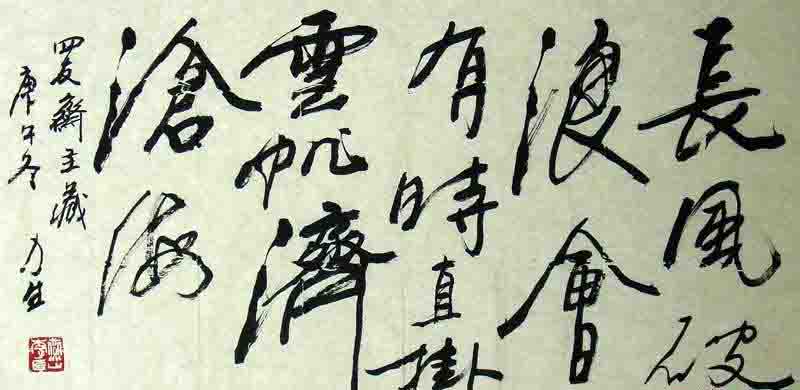 長風破
浪會
有時直掛
雲帆濟
滄海
四友齋主藏
庚午冬 力生